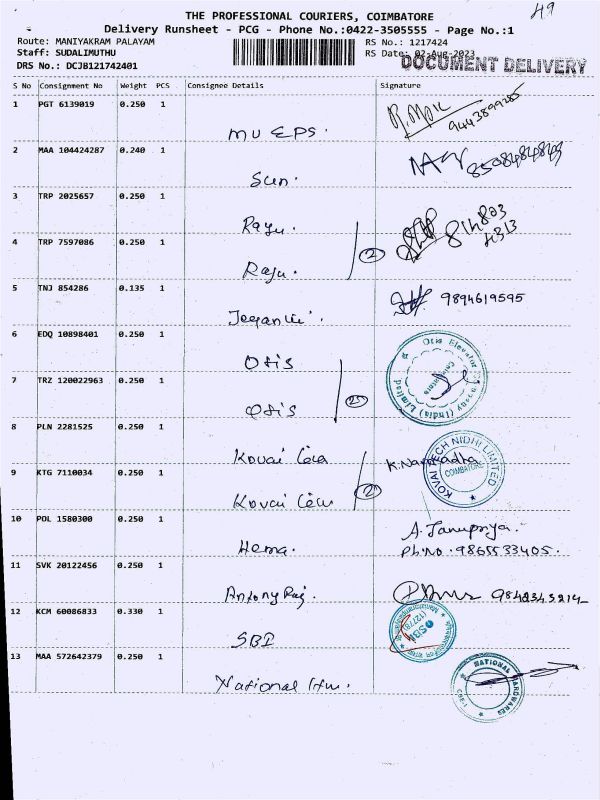 49
THE PROFESSIONAL COURIERS, COIMBATORE
Delivery Runsheet - PCG - Phone No.:0422-3505555 - Page No.:1
Route: MANIYAKRAM PALAYAM
RS No.: 1217424
Staff: SUDALIMUTHU
RS Date: 02-Aug-2023
DRS No.: DCJB121742401
DOCUMENT DELIVERY
S No Consignment No Weight PCS Consignee Details Signature
1 PGT 6139019 0.250 1
9443899285
MU EPS.
2 MAA 104424287 0.240 1
Sun.
3 TRP 2025657 0.250 1
Raju.
4 TRP 7597086 0.250 1
2
Raju.
5 TNJ 854286 0.135 1
9894619595
6 EDQ 10898401 0.250 1
Otis
Otis Elevator Company (India) Limited
Coimbatore
7 TRZ 120022963 0.250 1
Otis
8 PLN 2281525 0.250 1
Kovai
KOVAI TECH NIDHI LIMITED
COIMBATORE
9 KTG 7110034 0.250 1
2
Kovai
10 POL 1580300 0.250 1
A. Janupriya.
Hema.
Ph.No. 9865533405.
11 SVK 20122456 0.250 1
Antony Raj.
9842345214
12 KCM 60086833 0.330 1
SBI
SBI
13 MAA 572642379 0.250 1
National
NATIONAL HARDWARES